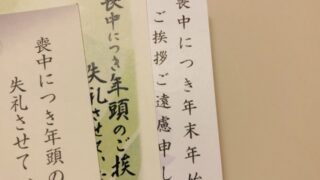 喪中につき年末年始
ご挨拶ご遠慮申し
喪中につき年頭のご挨
失礼させて
喪中につき年頭の
失礼させて